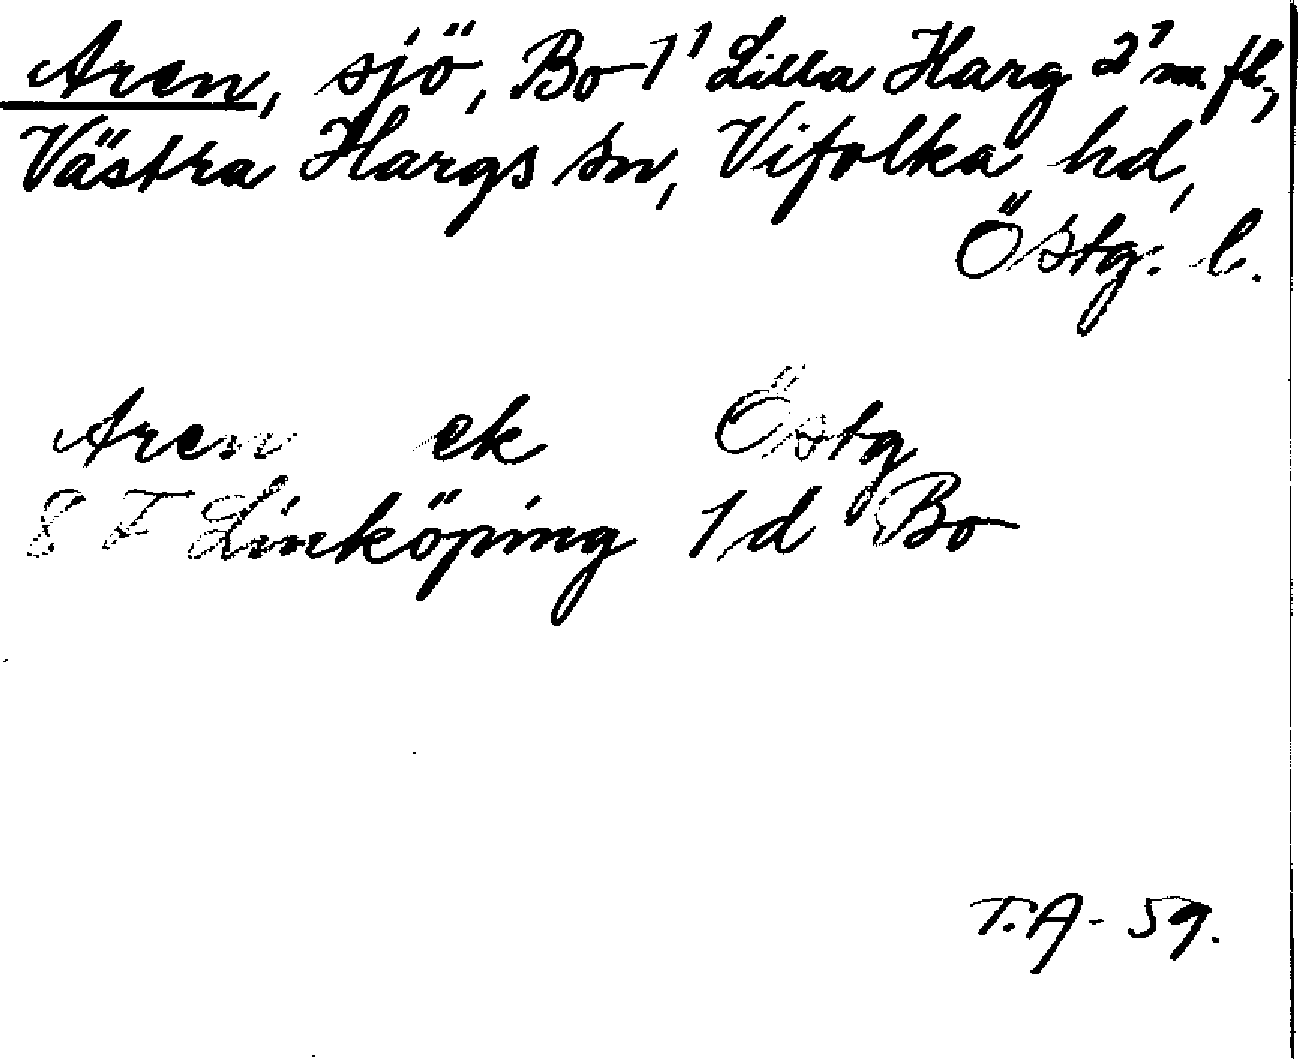 Aren, sjö, Bo 1¹ Lilla Harg 2¹ m. fl.,
Västra Hargs sn, Vifolka hd,
Östg. l.
Aren ek Östg
8 F Linköping 1 d Bo
T.A- 59.